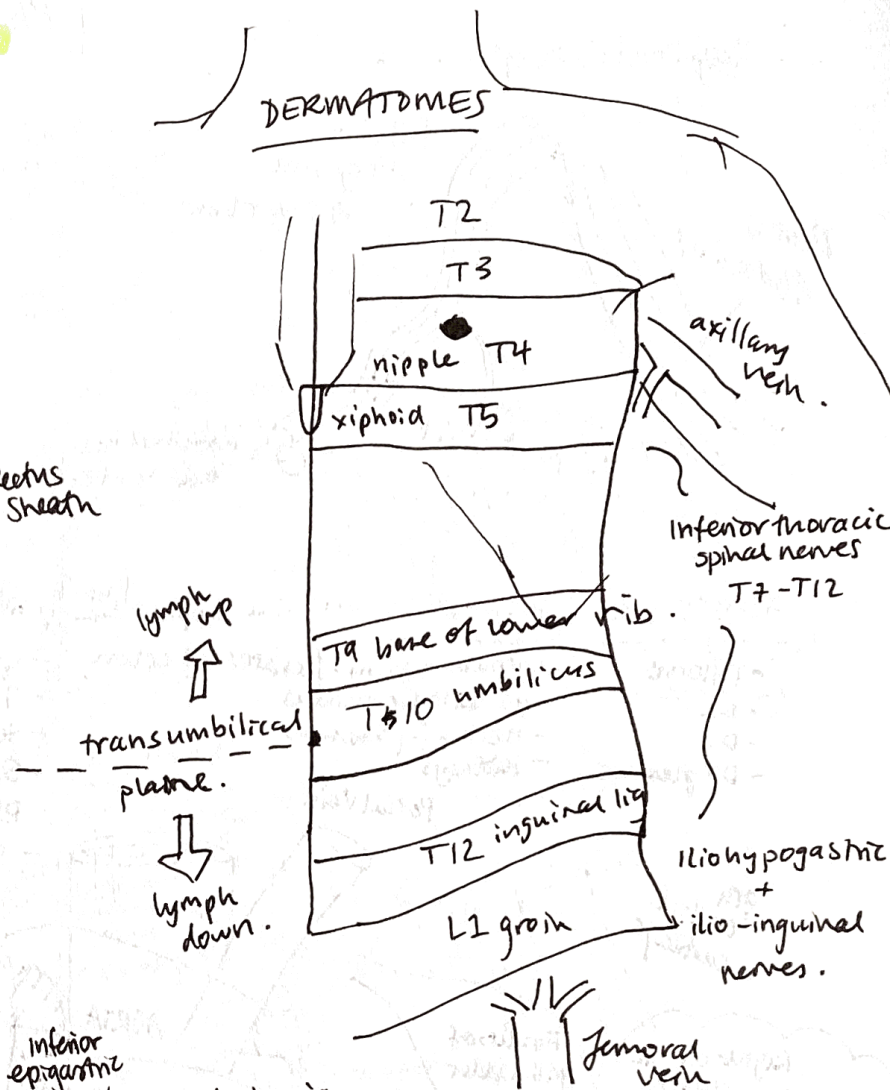 DERMATOMES
T2
T3
nipple T4
axillary
vein.
xiphoid T5
Sheath
Inferior thoracic
spinal nerves
T7-T12
lymph
up
T9 base of lower rib.
T10 umbilicus
transumbilical
plane.
T12 inguinal lig
lymph
down.
Iliohypogastric
+
ilio-inguinal
nerves.
L1 groin
Inferior
epigastric
femoral
vein